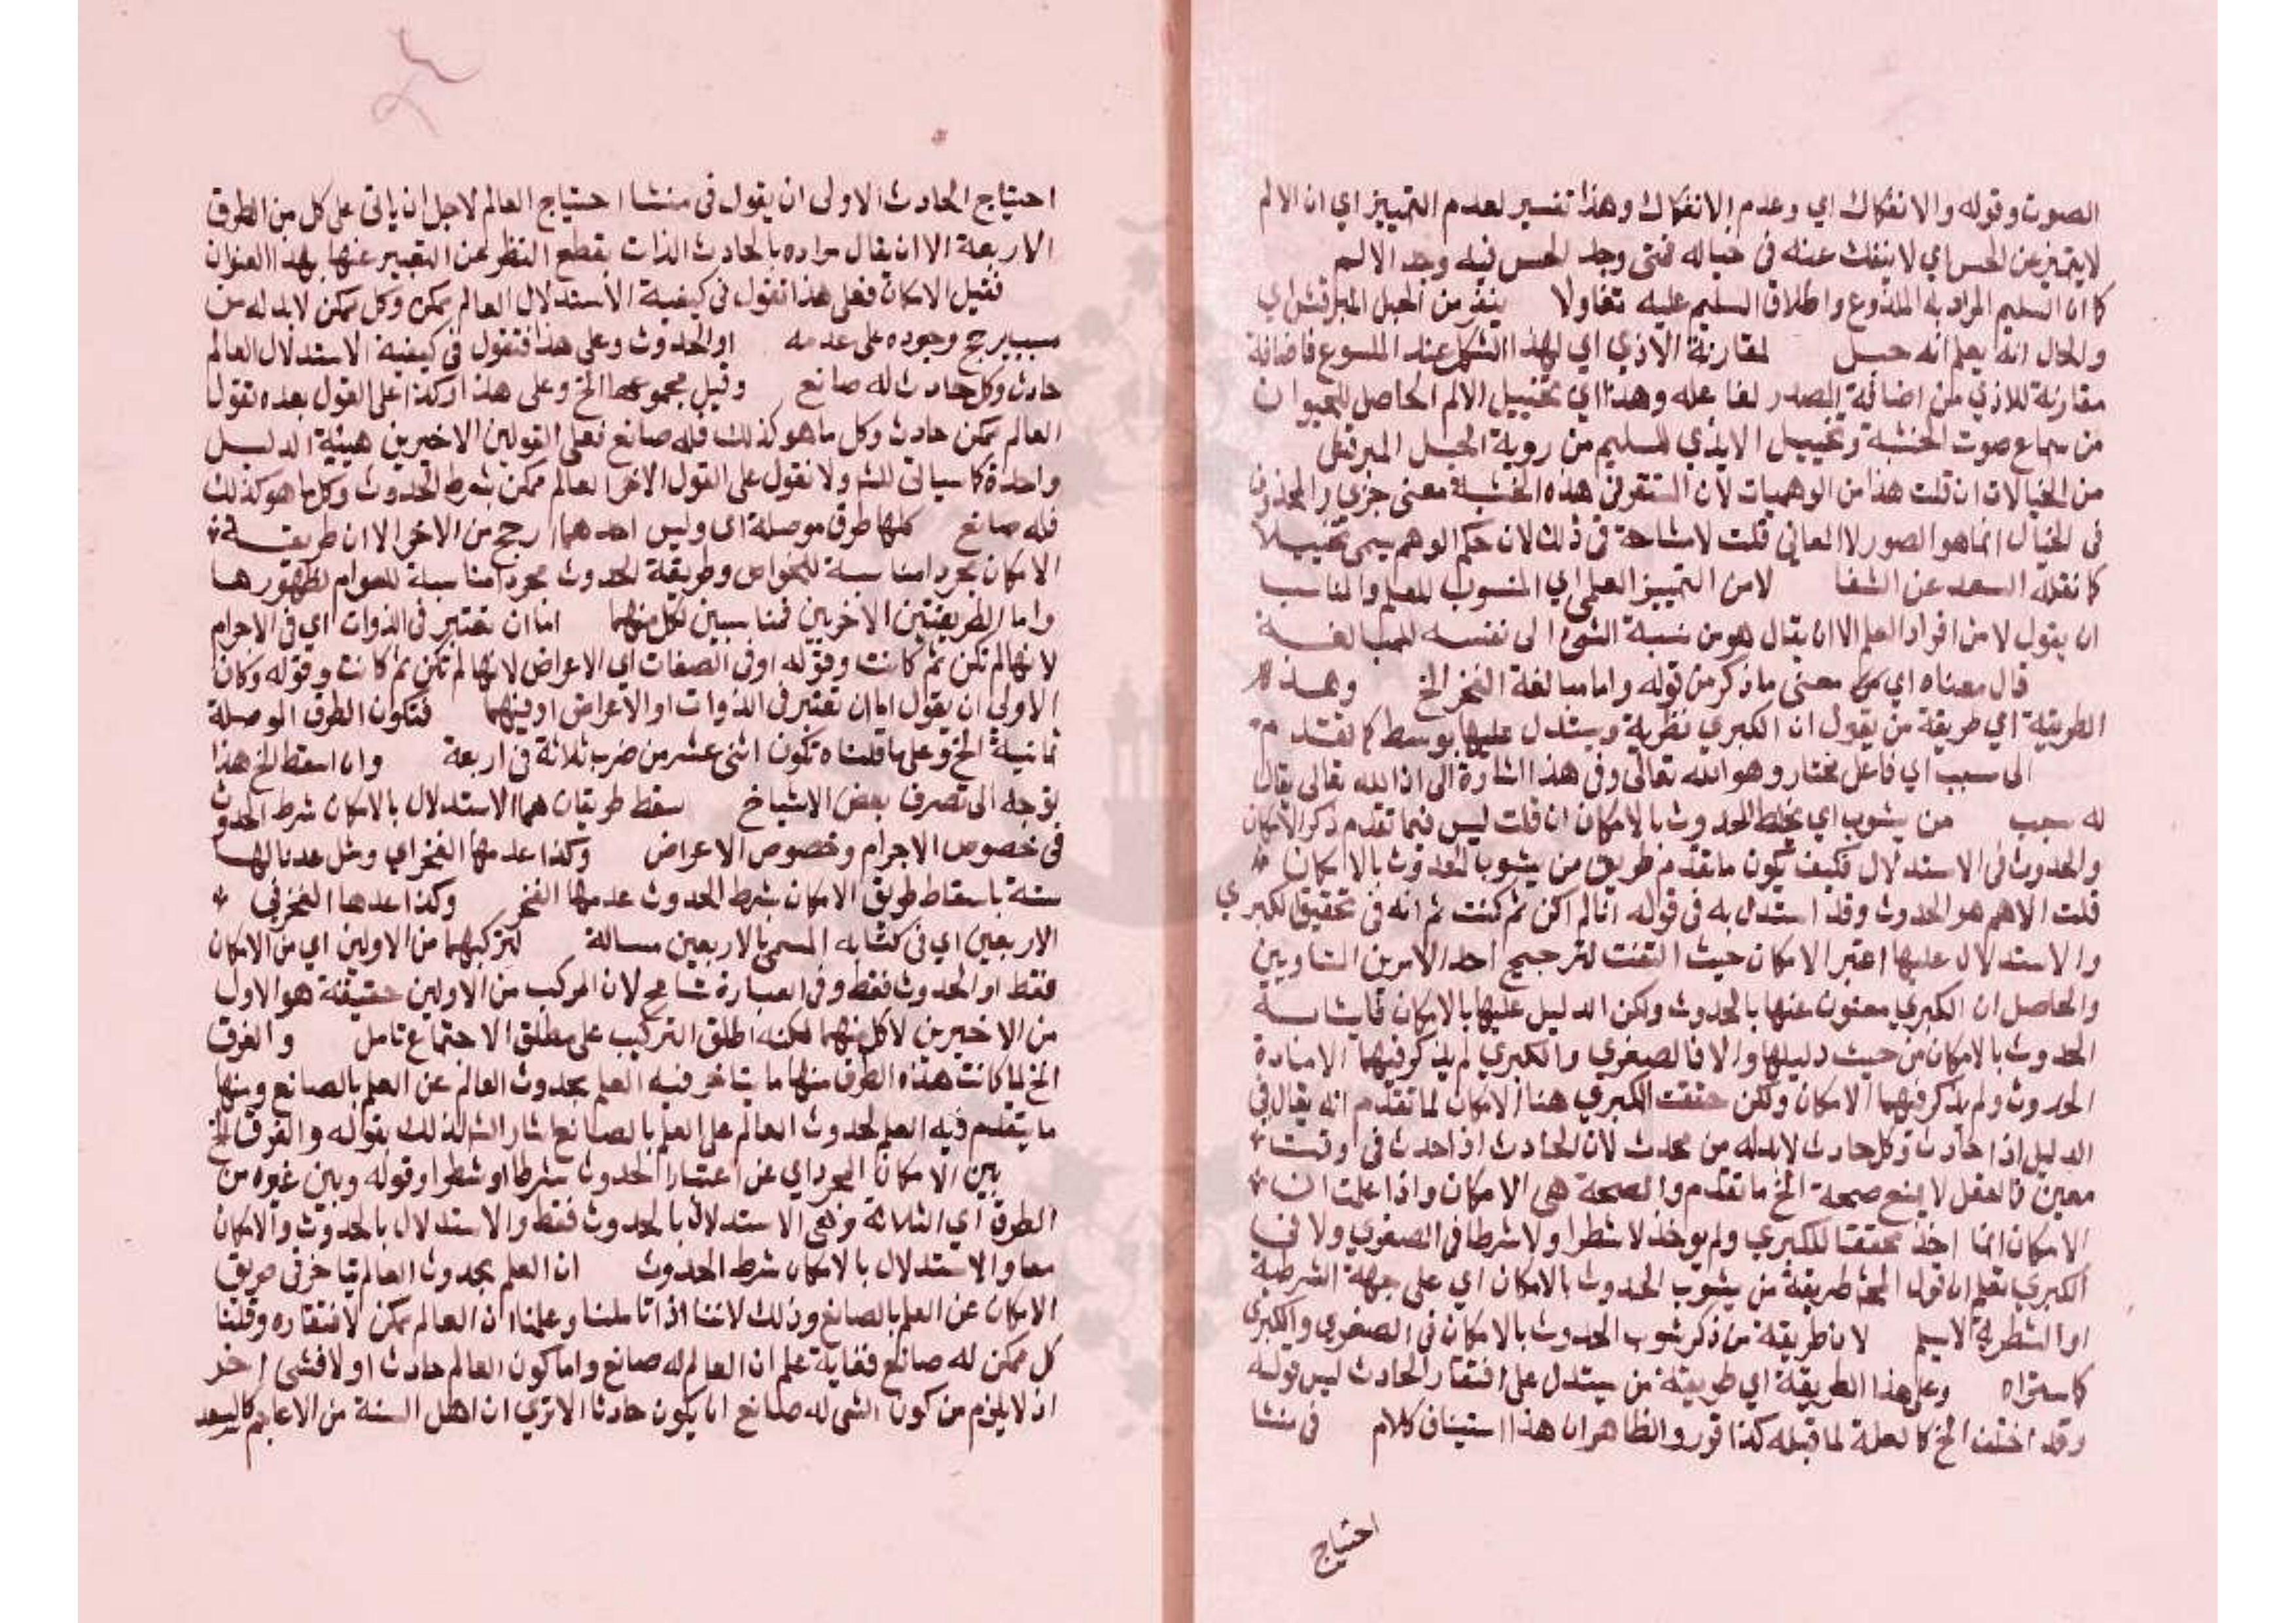 الصوت وقوله والانفكاك اي وعدم الانفكاك وهذا تفسير لعدم التمييز اي ان الالم
لا يتميز عن الحس اي لا ينفك عنه في خياله فمتى وجد الحس فيه وجد الالم
كما ان السليم المراد به الملذوع واطلاق السليم عليه تفاولا ينفر من الحبل المبرقش اي
والحال انه يعلم انه حبل لمقارنة الاذي اي لهذا الشكل عند الملسوع فاضافة
مقارنة للاذي من اضافة المصدر لفاعله وهذا اي تخييل الالم الحاصل للحيوان
من سماع صوت الخشبة وتخييل الايذي للسليم من روية الحبل المبرقش
من الخيالات ان قلت هذا من الوهميات لان التنفر في هذه الخشبة معنى جزي والمخزون
في الخيال انما هو الصور لا المعاني قلت لا مشاحة في ذلك لان حكم الوهم يسمى تخييلا
كما نقله السعد عن الشفا لا من التمييز العلمي اي المنسوب للعلم والمناسب
ان يقول لا من افراد العلم الا ان يقال هو من نسبة الشي الى نفسه للمبالغة
قال معناه اي معنى ما ذكر من قوله واما مبالغة الفخر الخ وهذه
الطريقة اي طريقة من يقول ان الكبري نظرية ويستدل عليها بوسط كما تقدم
الى سبب اي فاعل مختار وهو الله تعالى وفي هذا اشارة الى ان الله تعالى يقال
له سبب من يشوب اي يخلط الحدوث بالامكان ان قلت ليس فيما تقدم ذكر الامكان
والحدوث في الاستدلال فكيف يكون ما تقدم طريق من يشوب الحدوث بالامكان
قلت الاهم هو الحدوث وقد استدل به في قوله انا لم اكن ثم كنت ثم انه في تحقيق الكبري
والاستدلال عليها اعتبر الامكان حيث التفت لترجيح احد الامرين المتساويين
والحاصل ان الكبري معنون عنها بالحدوث ولكن الدليل عليها بالامكان فايشابه
الحدوث بالامكان من حيث دليلها والا فالصغري والكبري لم يذكر فيهما الا مادة
الحدوث ولم يذكر فيهما الامكان ولكن حققت الكبري هنا الامكان لما تقدم انه يقال في
الدليل انا حادث وكل حادث لابد له من محدث لان الحادث اذا حدث في وقت
معين فالعقل لا يمنع صحة الخ ما تقدم والصحة هي الامكان واذا علمت ان
الامكان انما اخذ محققا للكبري ولم يوخذ لا شطرا ولا شرطا في الصغري ولا في
الكبري تعلم ان قول المحشي طريقة من يشوب الحدوث بالامكان اي على جهة الشرطية
او الشطرية لا يسلم لان طريقة من ذكر شوب الحدوث بالامكان في الصغري والكبري
كما ستراه وعلى هذا الطريقة اي طريقة من يستدل على افتقار الحادث ليس قوله
وقد اختلف الخ كالعلة لما قبله كذا قرر والظاهر ان هذا استيناف كلام في منشا
احتياج
احتياج الحادث الاولى ان يقول في منشا احتياج العالم لاجل ان ياتي على كل من الطرق
الاربعة الا ان يقال مراده بالحادث الذات بقطع النظر عن التعبير عنها بهذا العنوان
فقيل الامكان فعلى هذا نقول في كيفية الاستدلال العالم ممكن وكل ممكن لابد له من
سبب يرجح وجوده على عدمه او الحدوث وعلى هذا فنقول في كيفية الاستدلال العالم
حادث وكل حادث له صانع وقيل مجموعهما الخ وعلى هذا وكذا على القول بعده نقول
العالم ممكن حادث وكل ما هو كذلك فله صانع فعلى القولين الاخيرين هيئة الدليل
واحدة كما سياتي للشم ولا نقول على القول الاخر العالم ممكن بشرط الحدوث وكل ما هو كذلك
فله صانع كلها طرق موصلة اي وليس احدهما ارجح من الاخر الا ان طريقة
الامكان مجردا مناسبة للخواص وطريقة الحدوث مجردا مناسبة للعوام لظهورها
واما الطريقتين الاخريين فمناسبين لكل منهما اما ان تعتبر في الذوات اي في الاجرام
لانها لم تكن ثم كانت وقوله او في الصفات اي الاعراض لانها لم تكن ثم كانت وقوله وكان
الاولى ان يقول اما ان تعتبر في الذوات او الاعراض او فيهما فتكون الطرق الموصلة
ثمانية الخ وعلى ما قلناه تكون اثنى عشر من ضرب ثلاثة في اربعة وان اسقط الخ هذا
توجه الى تصرف بعض الاشياخ سقط طريقان هما الاستدلال بالامكان شرط الحدوث
في خصوص الاجرام وخصوص الاعراض وكذا عدمها الفخر اي ومثل عدنا لها
ستة باسقاط طريق الامكان بشرط الحدوث عدمها الفخر وكذا عدها الفخر في
الاربعين اي في كتابه المسمى بالاربعين مسالة لتركبهما من الاولين اي من الامكان
فقط او الحدوث فقط وفي العبارة تسامح لان المركب من الاولين حقيقة هو الاول
من الاخيرين لا كل منهما لكنه اطلق التركيب على مطلق الاجتماع تامل والفرق
الخ لما كانت هذه الطرق منها ما يتاخر فيه العلم بحدوث العالم عن العلم بالصانع ومنها
ما يتقدم فيه العلم لحدوث العالم على العلم بالصانع اشار الشم لذلك بقوله والفرق الخ
بين الامكان المجرد اي عن اعتبار الحدوث شرطا او شطرا وقوله وبين غيره من
الطرق اي الثلاثة وهي الاستدلال بالحدوث فقط والاستدلال بالحدوث والامكان
معا والاستدلال بالامكان شرط الحدوث ان العلم بحدوث العالم يتاخر في طريق
الامكان عن العلم بالصانع وذلك لاننا اذا تاملنا وعلمنا ان العالم ممكن لافتقاره وقلنا
كل ممكن له صانع فغاية علم ان العالم له صانع واما كون العالم حادث او لا فشي اخر
اذ لا يلزم من كون الشي له صانع ان يكون حادثا الا تري ان اهل السنة من الاعاجم كالسعد